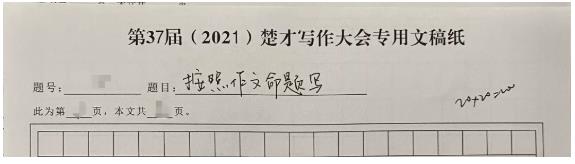 第37届（2021）楚才写作大会专用文稿纸
题号： 题目：按照作文命题写
此为第 页，本文共 页。